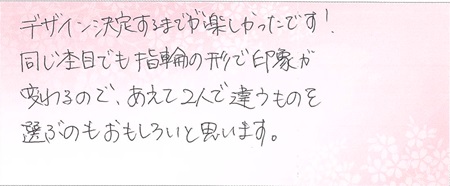 デザイン決定するまでが楽しかったです!
同じ杢目でも指輪の形で印象が
変わるので、あえて2人で違うものを
選ぶのもおもしろいと思います。